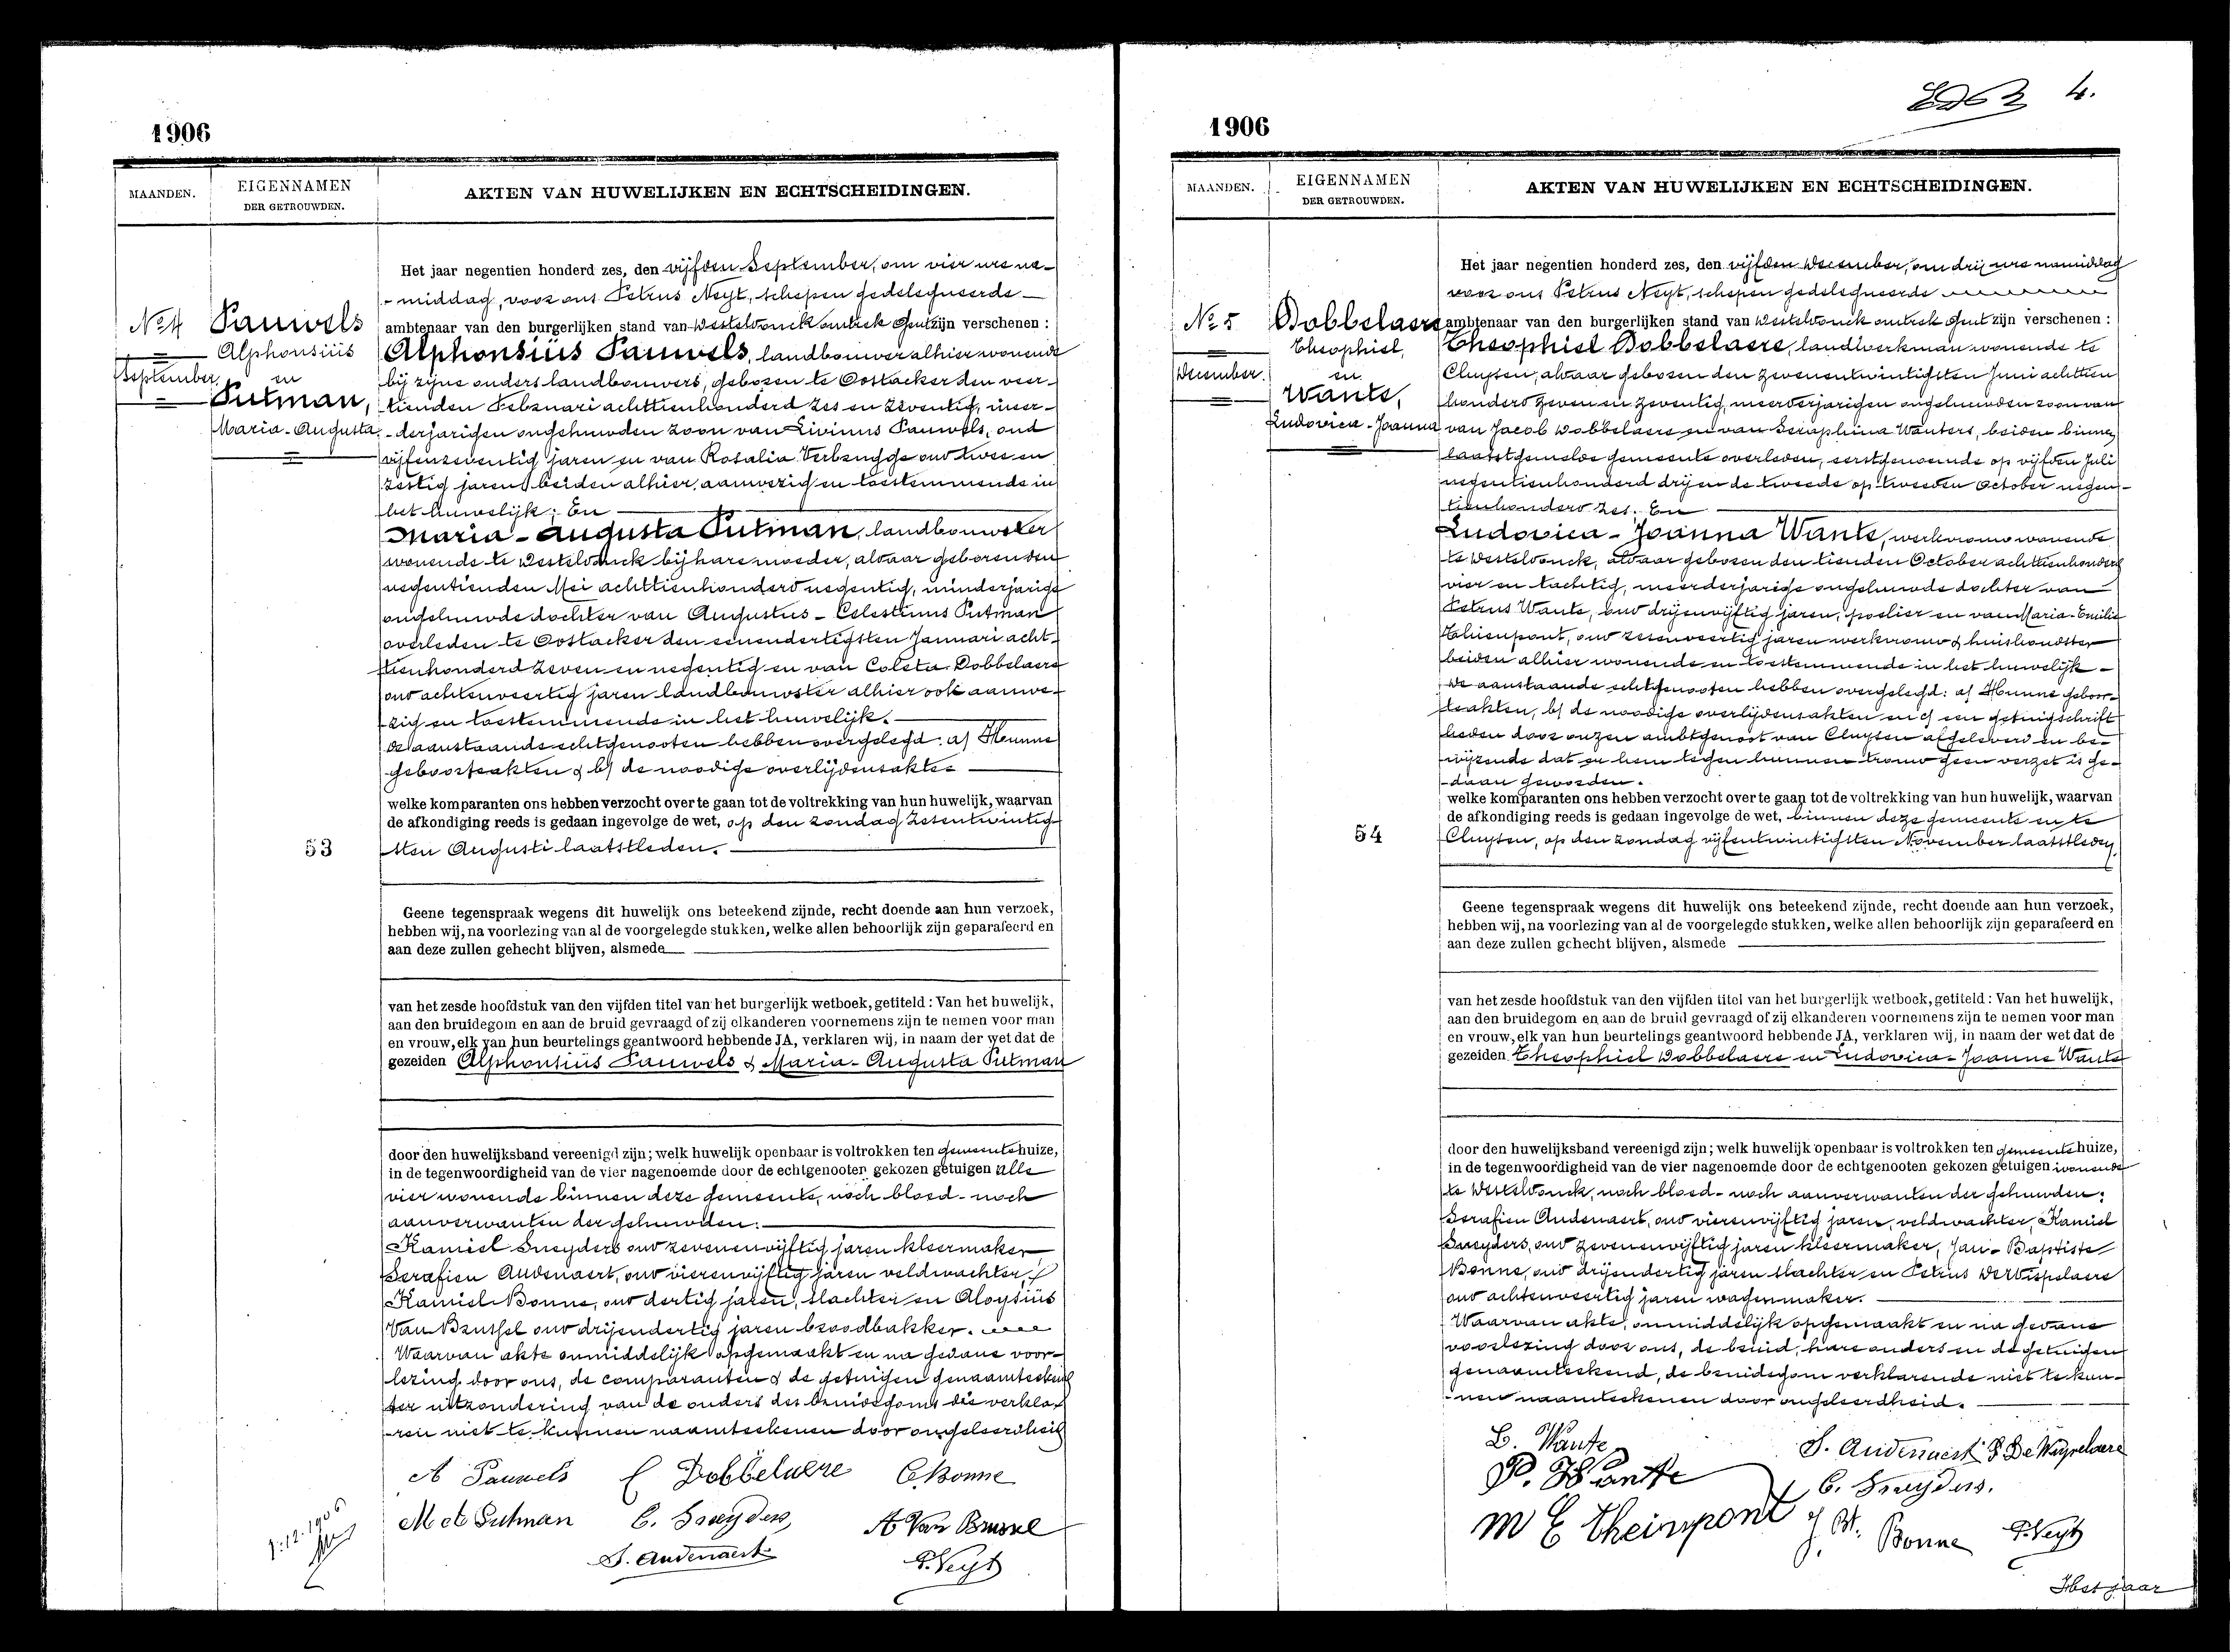 1906
MAANDEN.
EIGENNAMEN
DER GETROUWDEN.
AKTEN VAN HUWELIJKEN EN ECHTSCHEIDINGEN.
No 4
September
Pauwels
Alphonsiüs
en
Putman,
Maria-Augusta
53
Het jaar negentien honderd zes, den vijfden September, om vier ure na-
-middag, voor ons Petrus Neyt, schepen gedelegueerde
ambtenaar van den burgerlijken stand van Westeloonck omtrek Gent zijn verschenen :
Alphonsiüs Pauwels, landbouwer alhier wonende
bij zijne ouders landbouwers, geboren te Oostacker den veer-
tienden Februari achttienhonderd zes en zeventig, meer-
-derjarigen ongehuwden zoon van Livinus Pauwels, oud
vijfenzeventig jaren en van Rosalia Verbrugge oud twee en
zestig jaren beiden alhier aanwezig en toestemmende in
het huwelijk; En
Maria-Augusta Putman, landbouwster
wonende te Westeloonck bij hare moeder, aldaar geboren den
negentienden Mei achttienhonderd negentig, minderjarige
ongehuwde dochter van Augustus-Celestinus Putman
overleden te Oostacker den eenendertigsten Januari acht-
tienhonderd zeven en negentig en van Coleta Dobbelaere
oud achtenveertig jaren landbouwster alhier ook aanwe-
-zig en toestemmende in het huwelijk.
De aanstaande echtgenooten hebben overgelegd: a) Hunne
geboorteakten & b) de noodige overlijdensakten
welke komparanten ons hebben verzocht over te gaan tot de voltrekking van hun huwelijk, waarvan
de afkondiging reeds is gedaan ingevolge de wet, op den zondag zesentwintig-
sten Augusti laatstleden.
Geene tegenspraak wegens dit huwelijk ons beteekend zijnde, recht doende aan hun verzoek,
hebben wij, na voorlezing van al de voorgelegde stukken, welke allen behoorlijk zijn geparafeerd en
aan deze zullen gehecht blijven, alsmede
van het zesde hoofdstuk van den vijfden titel van het burgerlijk wetboek, getiteld : Van het huwelijk,
aan den bruidegom en aan de bruid gevraagd of zij elkanderen voornemens zijn te nemen voor man
en vrouw, elk van hun beurtelings geantwoord hebbende JA, verklaren wij, in naam der wet dat de
gezeiden Alphonsiüs Pauwels & Maria-Augusta Putman
door den huwelijksband vereenigd zijn; welk huwelijk openbaar is voltrokken ten gemeentehuize,
in de tegenwoordigheid van de vier nagenoemde door de echtgenooten gekozen getuigen alle
vier wonende binnen deze gemeente, noch bloed- noch
aanverwanten der gehuwden:
Kamiel Sneyders oud zevenenvijftig jaren kleermaker,
Serafien Audenaert, oud vierenvijftig jaren veldwachter,
Kamiel Bonne, oud dertig jaren, slachter en Aloysiüs
Van Brussel oud drijendertig jaren broodbakker.
Waarvan akte onmiddelijk opgemaakt en na gedane voor-
lezing door ons, de comparanten & de getuigen genaamteekend
ter uitzondering van de ouders des bruidegoms die verkla-
-ren niet te kunnen naamteekenen door ongeleerdheid
A Pauwels C Dobbelaere C. Bonne
M A Putman C. Sneyders, A Van Brussel
S. Audenaert P. Neyt
1-12-1906
4.
1906
MAANDEN.
EIGENNAMEN
DER GETROUWDEN.
AKTEN VAN HUWELIJKEN EN ECHTSCHEIDINGEN.
No 5
December.
Dobbelaere
Theophiel,
en
Wante,
Ludovica-Joanna
54
Het jaar negentien honderd zes, den vijfden December, om drij ure namiddag
voor ons Petrus Neyt, schepen gedelegueerde
ambtenaar van den burgerlijken stand van Westeloonck omtrek Gent zijn verschenen :
Theophiel Dobbelaere, landwerkman wonende te
Cluysen, aldaar geboren den zevenentwintigsten Juni achttien
honderd zeven en zeventig, meerderjarigen ongehuwden zoon van
van Jacob Dobbelaere en van Seraphina Wauters, beiden binnen
laatstgemelde gemeente overleden, eerstgenoemde op vijfden Juli
negentienhonderd drij en de tweede op tweeden October negen-
tienhonderd zes; En
Ludovica-Joanna Wante, werkvrouw wonende
te Westeloonck, aldaar geboren den tienden October achttienhonderd
vier en tachtig, meerderjarige ongehuwde dochter van
Petrus Wante, oud drijenvijftig jaren, poelier en van Maria-Emilie
Thienpont, oud zesenveertig jaren werkvrouw & huishoudster
beiden alhier wonende en toestemmende in het huwelijk -
De aanstaande echtgenooten hebben overgelegd: a) Hunne geboor-
teakten, b) de noodige overlijdensakten en c) een getuigschrift
heden door onzen ambtgenoot van Cluysen afgeleverd en be-
-wijzende dat er hem tegen hunnen trouw geen verzet is ge-
-daan geworden.
welke komparanten ons hebben verzocht over te gaan tot de voltrekking van hun huwelijk, waarvan
de afkondiging reeds is gedaan ingevolge de wet, binnen deze gemeente en te
Cluysen, op den zondag vijfentwintigsten November laatstleden.
Geene tegenspraak wegens dit huwelijk ons beteekend zijnde, recht doende aan hun verzoek,
hebben wij, na voorlezing van al de voorgelegde stukken, welke allen behoorlijk zijn geparafeerd en
aan deze zullen gehecht blijven, alsmede
van het zesde hoofdstuk van den vijfden titel van het burgerlijk wetboek, getiteld : Van het huwelijk,
aan den bruidegom en aan de bruid gevraagd of zij elkanderen voornemens zijn te nemen voor man
en vrouw, elk van hun beurtelings geantwoord hebbende JA, verklaren wij, in naam der wet dat de
gezeiden Theophiel Dobbelaere en Ludovica-Joanna Wante
door den huwelijksband vereenigd zijn; welk huwelijk openbaar is voltrokken ten gemeentehuize,
in de tegenwoordigheid van de vier nagenoemde door de echtgenooten gekozen getuigen wonende
te Westeloonck, noch bloed- noch aanverwanten der gehuwden:
Serafien Audenaert, oud vierenvijftig jaren, veldwachter, Kamiel
Sneyders, oud zevenenvijftig jaren kleermaker, Jan-Baptiste
Bonne, oud drijendertig jaren slachter en Petrus DeWispelaere
oud achtenveertig jaren wagenmaker.
Waarvan akte, onmiddelijk opgemaakt en na gedane
voorlezing door ons, de bruid, hare ouders en de getuigen
genaamteekend, de bruidegom verklarende niet te kun-
-nen naamteekenen door ongeleerdheid.
L. Wante S. Audenaert P De Wispelaere
P. Wante C. Sneyders.
M E Theinpont J. Bt. Bonne P. Neyt
Het jaar